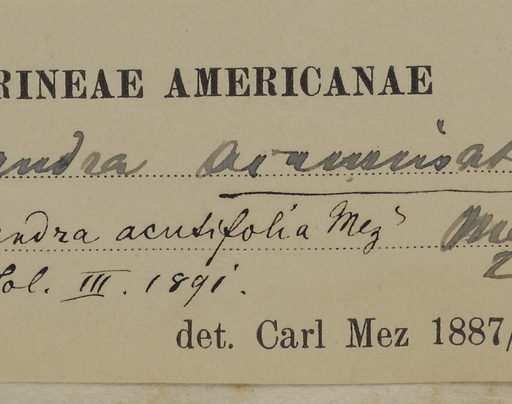 RINEAE AMERICANAE
andra acuminat
endra acutifolia Mez
ol. III. 1891.
det. Carl Mez 1887/